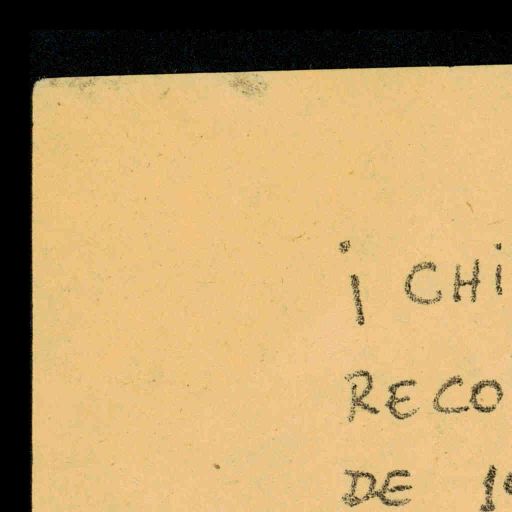 ¡ CHI
RECO
DE 19